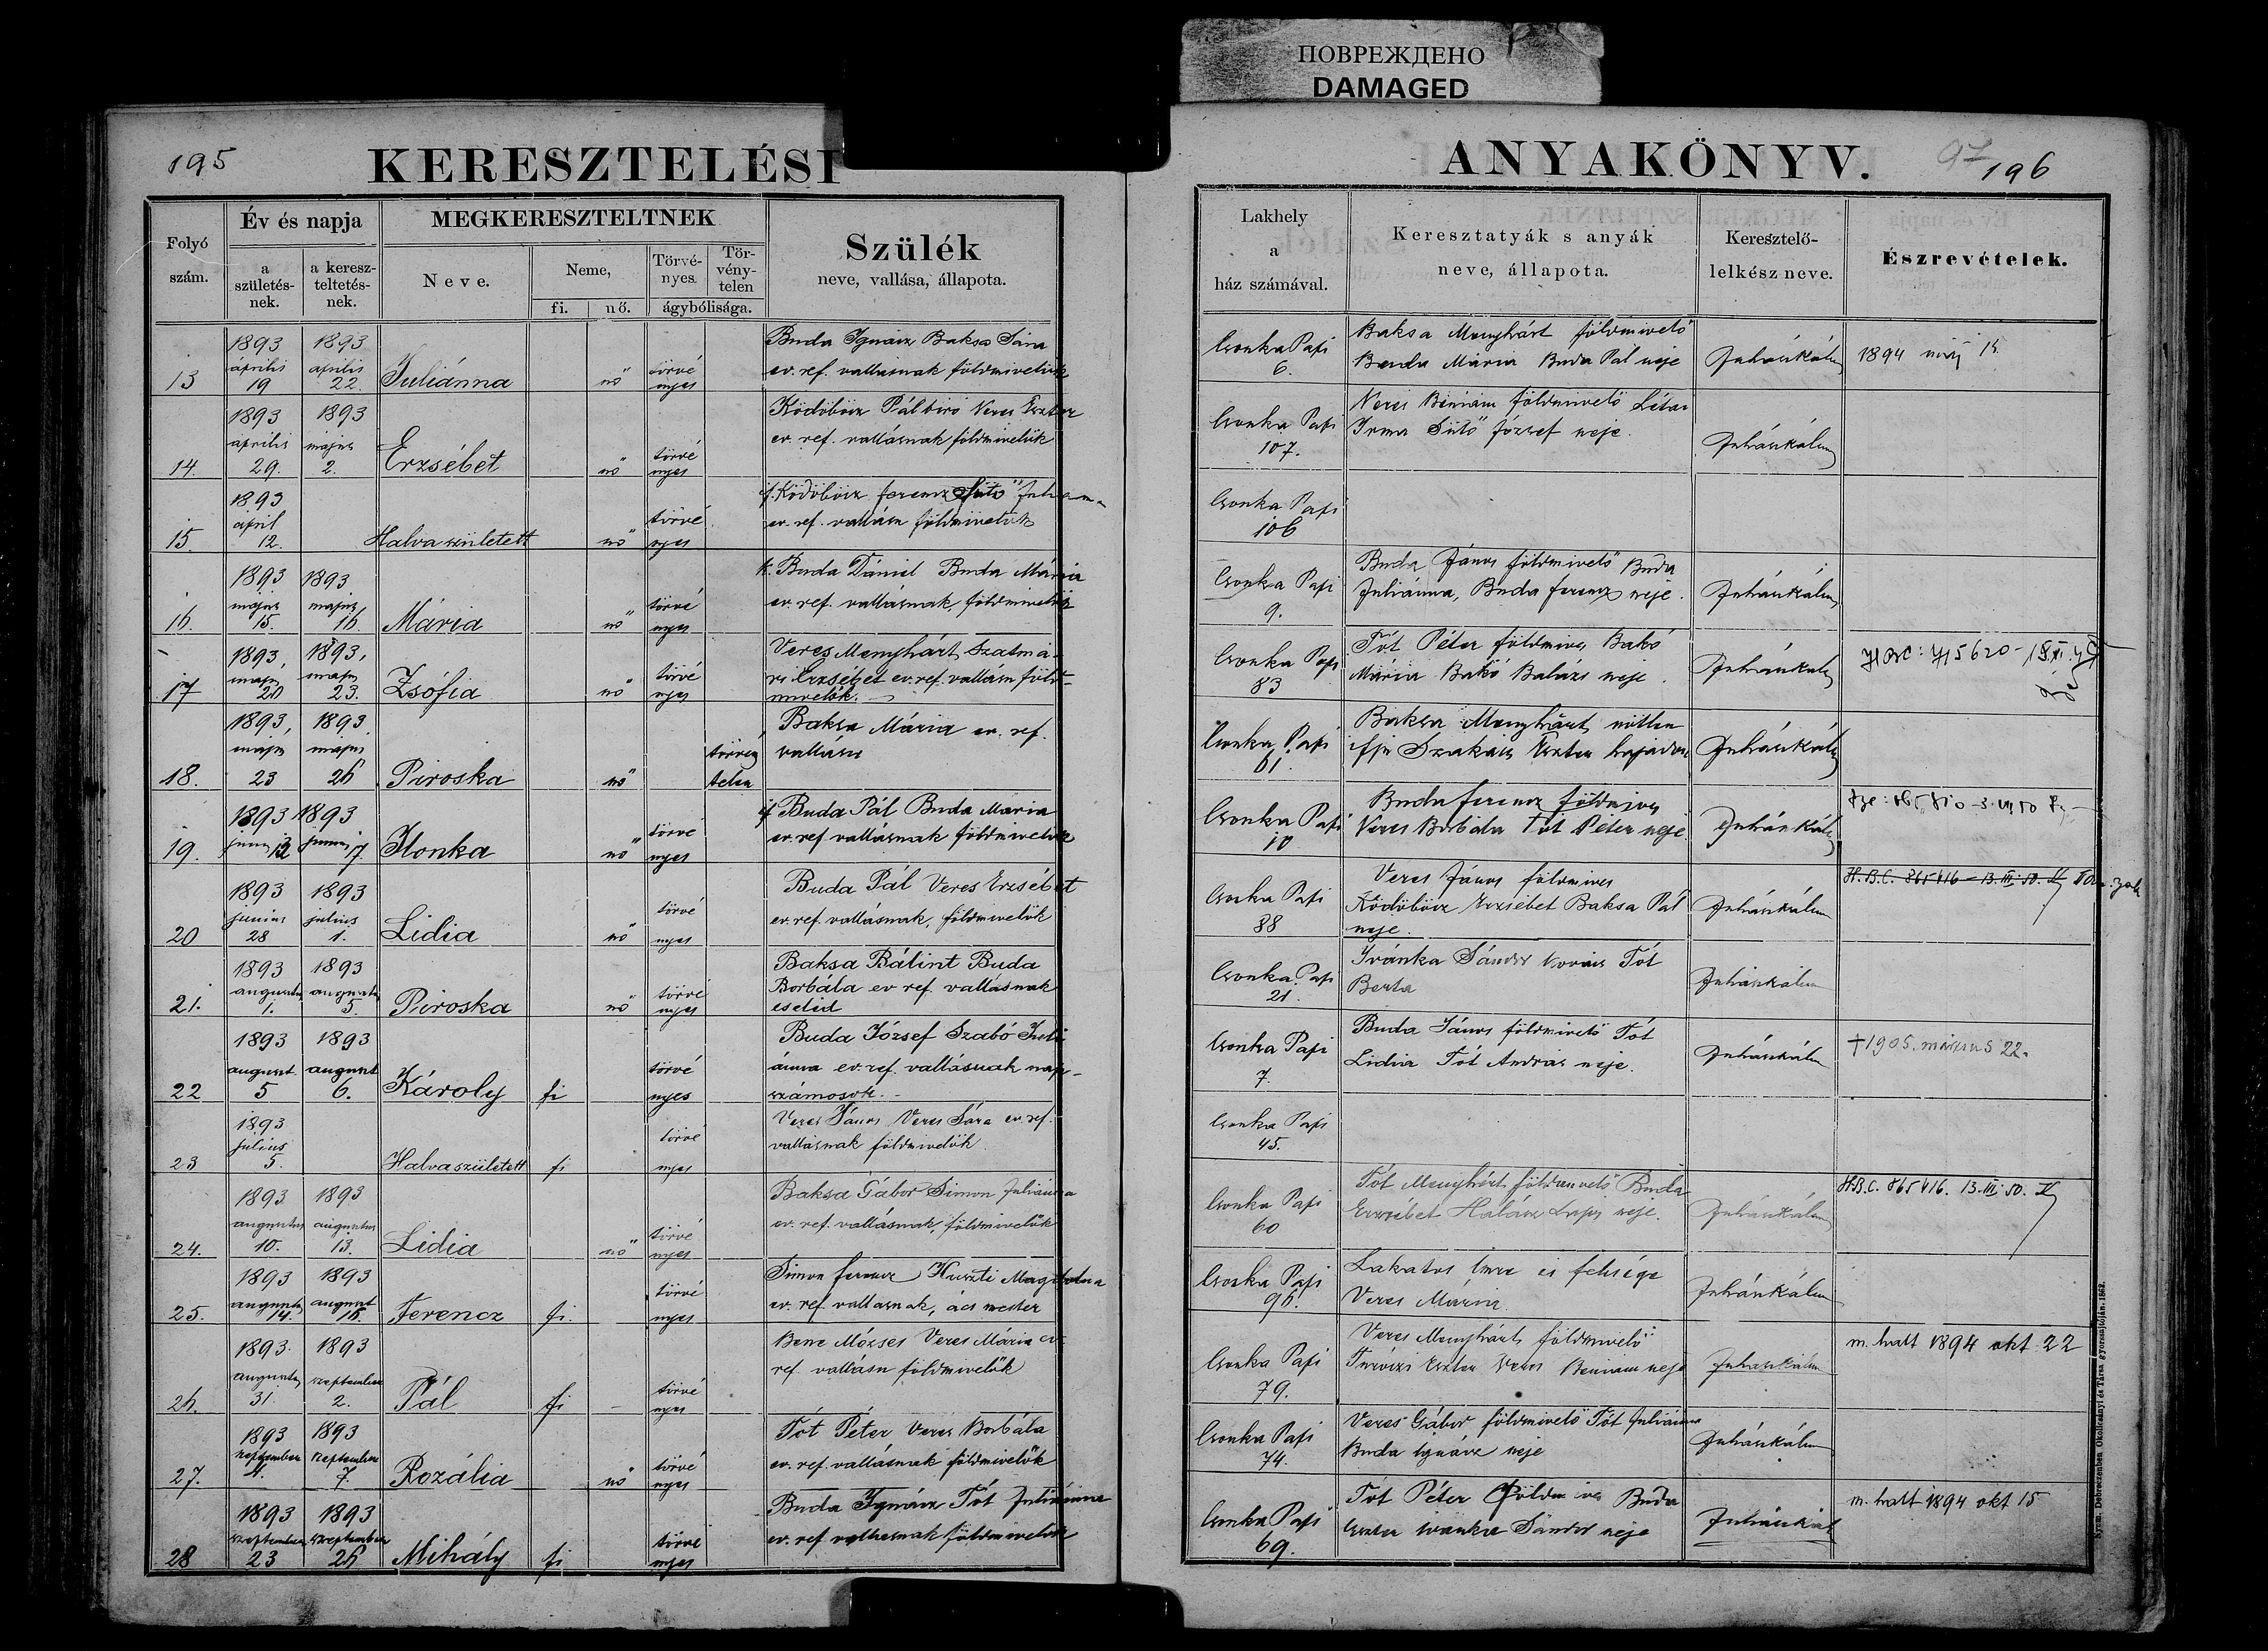 ПОВРЕЖДЕНО
DAMAGED
195
KERESZTELÉSI
Folyó
szám.
Év és napja
a
születés-
nek.
a keresz-
teltetés-
nek.
MEGKERESZTELTNEK
Neve.
Neme,
fi.
nő.
Törvé-
nyes
Tör-
vény-
telen
ágybólisága.
Szülék
neve, vallása, állapota.
13
1893
április
19
1893
április
22.
Juliánna
nő
törvé
nyes
Buda Ignácz Baksa Sára
ev. ref. vallásnak földmivelők
14.
1893
április
29.
1893
május
2.
Erzsébet
nő
törvé
nyes
Ködöböcz Pál biró Veres Eszter
ev. ref. vallásnak földmivelők
15.
1893
april
12.
Halva született
nő
törvé
nyes
if. Ködöböcz Ferencz Sütő
ev. ref. vallásu földmivelők
16.
1893
május
15.
1893
május
16.
Mária
nő
törvé
nyes
k. Buda Dániel Buda Mária
ev. ref. vallásnak, földmivelők
17
1893,
majus
20
1893,
majus
23.
Zsófia
nő
törvé
nyes
Veres Menyhárt, Szatmá-
ri Erzsébet ev. ref. vallásu föld-
mivelők.
18.
1893,
majus
23
1893
majus
26
Piroska
nő
törvény
telen
Baksa Mária ev. ref.
vallásu
19.
1893
junius 12
1893
junius 17
Ilonka
nő
törvé
nyes
if Buda Pál Buda Maria
ev. ref vallásnak földmivelők
20
1893
junius
28
1893
julius
1.
Lidia
nő
törvé
nyes
Buda Pál Veres Erzsébet
ev. ref. vallásnak, földmivelők
21.
1893
augustus
1.
1893
augustus
5.
Piroska
nő
törvé
nyes
Baksa Bálint Buda
Borbála ev ref. vallásnak
cseléd
22
1893
august.
5
1893
august
6.
Károly
fi
törvé
nyes
Buda József Szabó Juli-
ánna ev. ref. vallásnak nap-
számosok.
23
1893
július
5.
Halvaszületett
fi
törvé
nyes
Veres János Veres Sára ev. ref.
vallásnak földmivelők
24.
1893
augustus
10.
1893
augustus
13.
Lidia
nő
törvé
nyes
Baksa Gábor Simon Juliánna
ev. ref. vallásnak, földmivelők
25.
1893
augustus
14.
1893
august
16.
Ferencz
fi.
törvé
nyes
Simon Ferencz Huszti Magdolna
ev. ref vallásnak, ács mester
26.
1893.
augustus
31.
1893
szeptember
2.
Pál
fi
törvé
nyes
Bene Mózses Veres Mária ev.
ref. vallásu földmivelők
27.
1893
szeptember
4.
1893
szeptember
7.
Rozália
nő
törvé
nyes
Tót Péter Veres Borbála
ev. ref. vallásnak földmivelők
28
1893
szeptember
23
1893
szeptember
26
Mihály
fi
törvé
nyes
Buda Ignácz Tót Juliánna
ev. ref vallásnak földmivelők
ANYAKÖNYV.
97
196
Lakhely
a
ház számával.
Keresztatyák s anyák
neve, állapota.
Keresztelő-
lelkész neve.
Észrevételek.
Csonka Papi
6.
Baksa Menyhárt földmivelő
Buda Mária Buda Pál neje
Juhászkálmán
1894 máj 15
Csonka Papi
107.
Veres Béniám földmivelő
Irma Sütő József neje.
Juhászkálmán
Csonka Papi
106
Csonka Papi
9.
Buda János földmivelő Buda
Juliánna, Buda Ferencz neje.
Juhászkálmán
Csonka Papi
83
Tót Péter földmives Bakó
Mária Bakó Balázs neje.
Juhászkálmán
Csonka Papi
61.
Baksa Menyhárt, nőtlen
ifju Szakács Eszter hajadon
Juhászkálmán
Csonka Papi
10
Buda Ferencz földmives
Veres Borbála Tót Péter neje
Juhászkálmán
Csonka Papi
88
Veres János földmives
Ködöböcz Erzsébet Baksa Pál
neje.
Juhászkálmán
H.B.C. 865416 - 13.III.50.
Csonka Papi
21.
Ivánka Sándor Tót
Berta
Juhászkálmán
Csonka Papi
7.
Buda János földmivelő Tót
Lidia Tót András neje.
Juhászkálmán
†1905. március 22.
Csonka Papi
45.
Csonka Papi
60
Tót Menyhért földmivelő Buda
Erzsébet Halász Lajos neje.
Juhászkálmán
H.B.C. 865416. 13.III.50.
Csonka Papi
96.
Lakatos Imre és felesége
Veres Mária
Juhászkálmán
Csonka Papi
79.
Veres Menyhárt földmivelő
Eszter Veres Beniam neje
Juhászkálmán
m. halt 1894 okt 22
Csonka Papi
74.
Veres Gábor földmivelő Tót Juliánna
Buda Ignácz neje
Juhászkálmán
Csonka Papi
69.
Tót Péter földmives Buda
Eszter Ivánka Sándor neje
m. halt 1894 okt 15